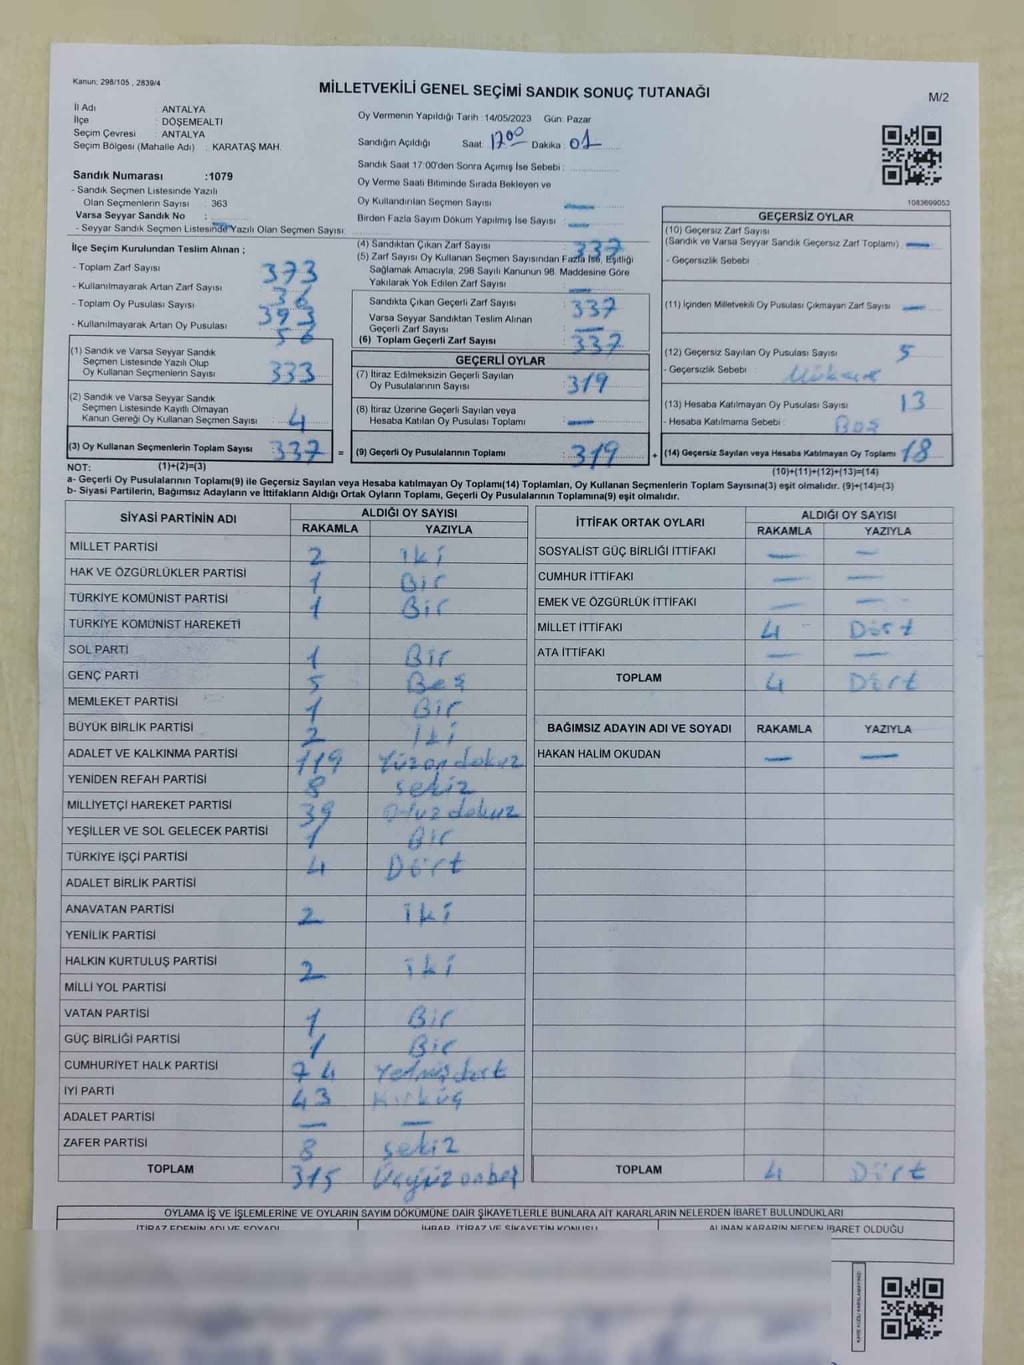 Kanun: 298/105 , 2839/4
MİLLETVEKİLİ GENEL SEÇİMİ SANDIK SONUÇ TUTANAĞI
M/2
İl Adı ANTALYA
İlçe : DÖŞEMEALTI
Seçim Çevresi : ANTALYA
Seçim Bölgesi (Mahalle Adı) : KARATAŞ MAH.
Oy Vermenin Yapıldığı Tarih : 14/05/2023 Gün: Pazar
Sandığın Açıldığı Saat: 17:00 Dakika : 01
Sandık Saat 17:00'den Sonra Açımış İse Sebebi :
Oy Verme Saati Bitiminde Sırada Bekleyen ve
Oy Kullandırılan Seçmen Sayısı : —
Birden Fazla Sayım Döküm Yapılmış İse Sayısı : —
1083699053
Sandık Numarası :1079
- Sandık Seçmen Listesinde Yazılı
Olan Seçmenlerin Sayısı : 363
Varsa Seyyar Sandık No :
- Seyyar Sandık Seçmen Listesinde Yazılı Olan Seçmen Sayısı: —
İlçe Seçim Kurulundan Teslim Alınan ;
- Toplam Zarf Sayısı : 373
- Kullanılmayarak Artan Zarf Sayısı : 36
- Toplam Oy Pusulası Sayısı : 393
- Kullanılmayarak Artan Oy Pusulası : 56
(1) Sandık ve Varsa Seyyar Sandık
Seçmen Listesinde Yazılı Olup
Oy Kullanan Seçmenlerin Sayısı : 333
(2) Sandık ve Varsa Seyyar Sandık
Seçmen Listesinde Kayıtlı Olmayan
Kanun Gereği Oy Kullanan Seçmen Sayısı : 4
(3) Oy Kullanan Seçmenlerin Toplam Sayısı : 337
(4) Sandıktan Çıkan Zarf Sayısı : 337
(5) Zarf Sayısı Oy Kullanan Seçmen Sayısından Fazla İse, Eşitliği
Sağlamak Amacıyla, 298 Sayılı Kanunun 98. Maddesine Göre
Yakılarak Yok Edilen Zarf Sayısı : —
Sandıkta Çıkan Geçerli Zarf Sayısı : 337
Varsa Seyyar Sandıktan Teslim Alınan
Geçerli Zarf Sayısı : —
(6) Toplam Geçerli Zarf Sayısı : 337
GEÇERLİ OYLAR
(7) İtiraz Edilmeksizin Geçerli Sayılan
Oy Pusulalarının Sayısı : 319
(8) İtiraz Üzerine Geçerli Sayılan veya
Hesaba Katılan Oy Pusulası Toplamı : —
= (9) Geçerli Oy Pusulalarının Toplamı : 319
GEÇERSİZ OYLAR
(10) Geçersiz Zarf Sayısı
(Sandık ve Varsa Seyyar Sandık Geçersiz Zarf Toplamı) : —
- Geçersizlik Sebebi :
(11) İçinden Milletvekili Oy Pusulası Çıkmayan Zarf Sayısı : —
(12) Geçersiz Sayılan Oy Pusulası Sayısı : 5
- Geçersizlik Sebebi :
(13) Hesaba Katılmayan Oy Pusulası Sayısı : 13
- Hesaba Katılmama Sebebi : Boş
+ (14) Geçersiz Sayılan veya Hesaba Katılmayan Oy Toplamı : 18
NOT: (1)+(2)=(3) (10)+(11)+(12)+(13)=(14)
a- Geçerli Oy Pusulalarının Toplamı(9) ile Geçersiz Sayılan veya Hesaba katılmayan Oy Toplamı(14) Toplamları, Oy Kullanan Seçmenlerin Toplam Sayısına(3) eşit olmalıdır. (9)+(14)=(3)
b- Siyasi Partilerin, Bağımsız Adayların ve İttifakların Aldığı Ortak Oyların Toplamı, Geçerli Oy Pusulalarının Toplamına(9) eşit olmalıdır.
SİYASİ PARTİNİN ADI ALDIĞI OY SAYISI
RAKAMLA YAZIYLA
MİLLET PARTİSİ 2 iki
HAK VE ÖZGÜRLÜKLER PARTİSİ 1 Bir
TÜRKİYE KOMÜNİST PARTİSİ 1 Bir
TÜRKİYE KOMÜNİST HAREKETİ
SOL PARTİ 1 Bir
GENÇ PARTİ 5 Beş
MEMLEKET PARTİSİ 1 Bir
BÜYÜK BİRLİK PARTİSİ 2 İki
ADALET VE KALKINMA PARTİSİ 119 Yüzondokuz
YENİDEN REFAH PARTİSİ 8 sekiz
MİLLİYETÇİ HAREKET PARTİSİ 39 Otuzdokuz
YEŞİLLER VE SOL GELECEK PARTİSİ 1 Bir
TÜRKİYE İŞÇİ PARTİSİ 4 Dört
ADALET BİRLİK PARTİSİ
ANAVATAN PARTİSİ 2 iki
YENİLİK PARTİSİ
HALKIN KURTULUŞ PARTİSİ 2 iki
MİLLİ YOL PARTİSİ
VATAN PARTİSİ 1 Bir
GÜÇ BİRLİĞİ PARTİSİ 1 Bir
CUMHURİYET HALK PARTİSİ 74 Yetmişdört
İYİ PARTİ 43 Kırküç
ADALET PARTİSİ — —
ZAFER PARTİSİ 8 sekiz
TOPLAM 315 Üçyüzonbeş
İTTİFAK ORTAK OYLARI ALDIĞI OY SAYISI
RAKAMLA YAZIYLA
SOSYALİST GÜÇ BİRLİĞİ İTTİFAKI — —
CUMHUR İTTİFAKI — —
EMEK VE ÖZGÜRLÜK İTTİFAKI — —
MİLLET İTTİFAKI 4 Dört
ATA İTTİFAKI — —
TOPLAM 4 Dört
BAĞIMSIZ ADAYIN ADI VE SOYADI RAKAMLA YAZIYLA
HAKAN HALİM OKUDAN — —
TOPLAM 4 Dört
OYLAMA İŞ VE İŞLEMLERİNE VE OYLARIN SAYIM DÖKÜMÜNE DAİR ŞİKAYETLERLE BUNLARA AİT KARARLARIN NELERDEN İBARET BULUNDUKLARI
İTİRAZ EDENİN ADI VE SOYADI İHBAR, İTİRAZ VE ŞİKAYETİN KONUSU ALINAN KARARIN NEDEN İBARET OLDUĞU